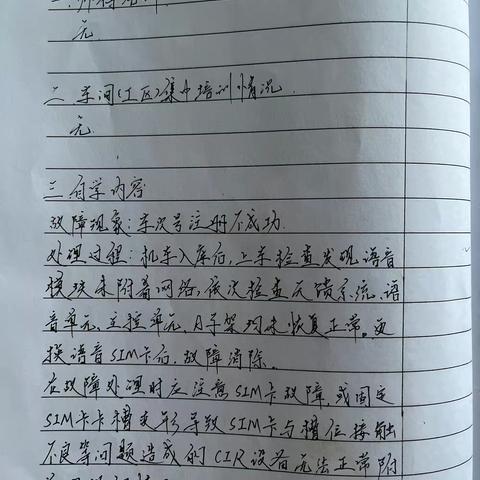 无
二、车间(工区)集中培训情况
无
三、自学内容
故障现象:车次号注册不成功.
处理过程:机车入库后,上车检查发现语音
模块未附着网络,依次检查天馈系统、语
音单元、主控单元、母子架均未恢复正常。更
换语音SIM卡后,故障消除。
在故障处理时应注意SIM卡故障,或固定
SIM卡卡槽变形导致SIM卡与槽位接触
不良等问题造成的CIR设备无法正常附